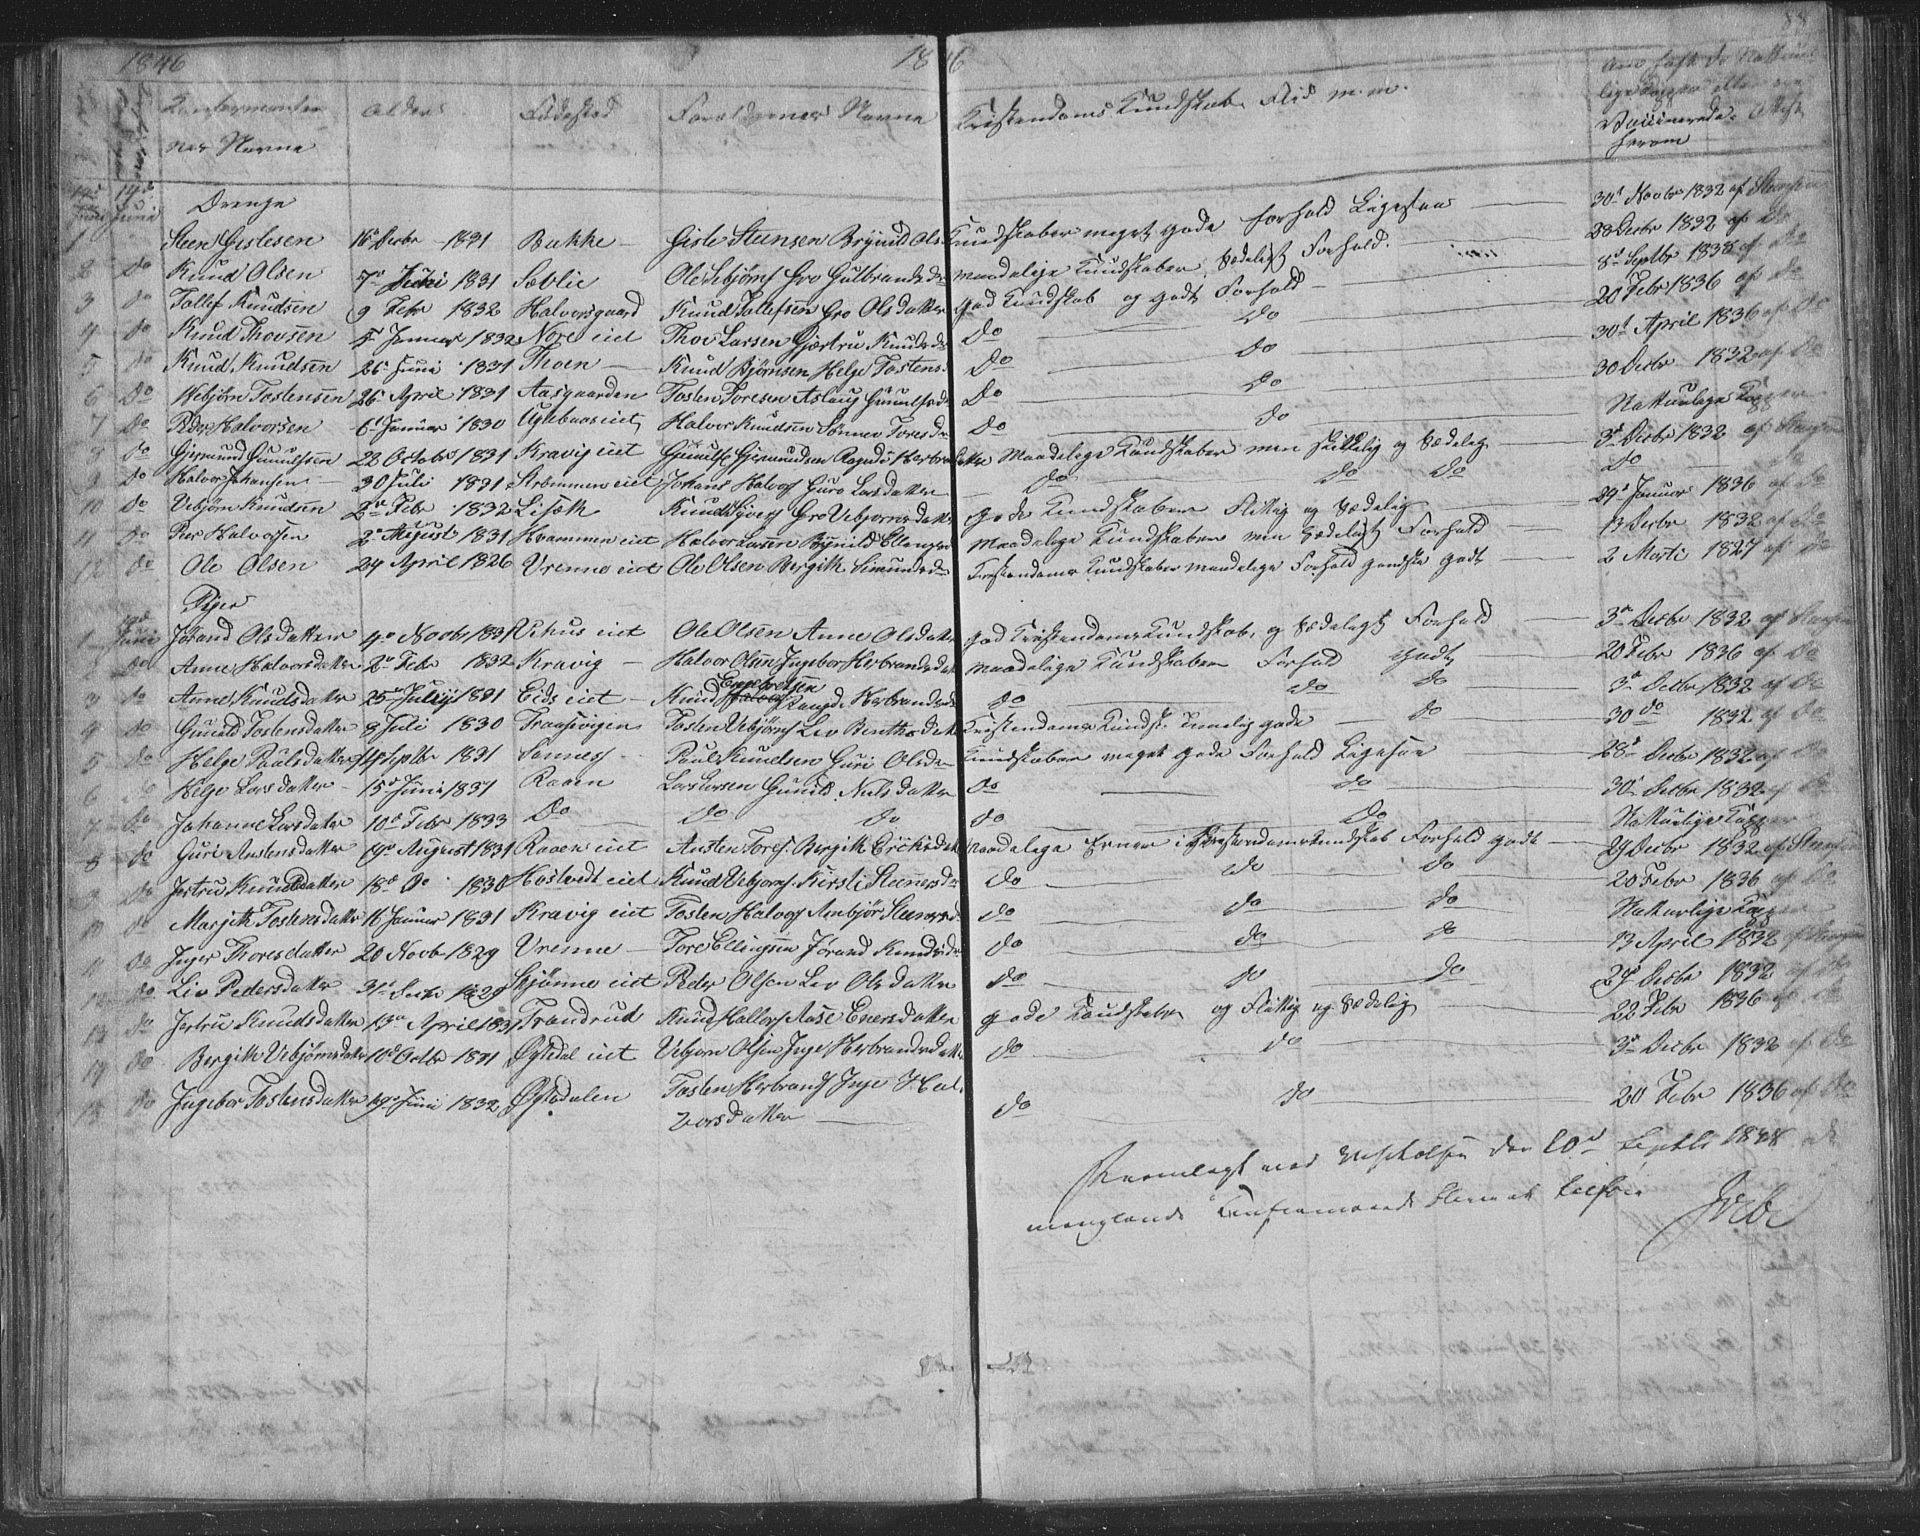 1846 1846 88
Alder Fødested Forældrenes Navne Kristendoms Kundskab, Flid m.m.
nes Navne
14d Juni 14d Juni Drenge
1 Steen Gislesen 16 Decbr 1831 Bakke Gisle Steensen Brynild Ols Kundskaber meget gode forhold Ligesaa 30d Novbr 1832 af
2 do Knud Olsen 7de Juni 1831 Sæblie Ole Sebjørns Gro Gulbrandsd maadelige Kundskaber, Sædeligt Forhold. 28 Decbr 1832 af Do
3 do Tollef Knudsen 9 Febr 1832 Halvorsgaard Knud Tollefsen Gro Olsdatter god Kundskab og godt Forhold 8d Septbr 1838 af Do
4 do Knud Thovsen 5 Januar 1832 Nore eiet Thov Larsen Gjertru Knudsd Do Do 20 Febr 1836 af Do
5 do Knud Knudsen 26 Juni 1831 Thoen Knud Bjørnsen Helge Tostens Do Do 30d April 1836 af Do
6 Do Vebjørn Tostensen 26 April 1831 Aasgaarden Tosten Toresen Aslaug Gunulfsd Do Do 30 Decbr 1832 af Do
7 Do Peder Halvorsen 6d Januar 1830 eiet Halvor Knudsen Sønnev Toresd Do Do Naturlige Kopper
8 do Gjermund Gunulfsen 22 Octobr 1831 Kravig eiet Gunulf Gjermundsen Ragnild Herbrandsdatter Maadelige Kundskaber men skikkelig og Sædelig 3d Decbr 1832 af
9 Do Halvor Johansen 30 Juli 1831 Strømmen eiet Johans Halvors Guro Larsdatter Do Do Do Do
10 do Vebjørn Knudsen 2de Febr 1832 Liset Knud Gro Vebjørnsdatter gode Kundskaber Flittig og Sædelig 29d Januar 1836 af Do
11 Do Per Halvorsen 2de August 1831 Hvammen eiet Halvor Larsen Brynild Ellingsd Maadelige Kundskaber men Sædeligt Forhold 13 Decbr 1832 af Do
12 do Ole Olsen 24 April 1826 Vrenne eiet Ole Olsen Bergith Simunsd Kristendoms Kundskaber maadelige Forhold ganske godt 2 Marti 1827 af Do
Piger
1 Juni Jørand Olsdatter 4de Novbr 1831 Vihus eiet Ole Olsen Anne Olsdatter god Kristendoms Kundskab, og Sædeligt Forhold 3d Decbr 1832 af
2 Do Anne Halvorsdatter 2de Febr 1832 Kravig Halvor Olsen Ingebor Herbrandsdat maadelige Kundskaber Forhold Godt 20 Febr 1836 af Do
3 do Anne Knudsdatter 25de Julii 1831 Eids eiet Knud Engebretsen Raugd. Herbrandsd do do do 3d Decbr 1832 af Do
4 do Gunild Tostensdatter 8 Juli 1830 Traasvigen Tosten Vebjørns Liv Benthsdat Kristendoms Kundsk. temelig gode do 30 do 1832 af Do
5 Do Helge Paulsdatter 14 Septbr 1831 Sonnes Paul Knudsen Guri Olsd Kundskaber meget gode Forhold Ligesaa 28d Decbr 1832 af Do
6 do Helge Larsdatter 15d Juni 1831 Raaen Lars Larsen Gunild Nilsdatter Do do 30 Decbr 1832 af Do
7 do Johanne Larsdatter 10d Febr 1833 Do Do do do Do Naturlige Kopper
8 do Guri Austensdatter 19de August 1831 Raaen eiet Austen Tores. Bergith Erichsdat Maadelige Evner i Kristendomskundskab Forhold godt 29 Decbr 1832 af
9 Do Jertru Knudsdatter 18d Do 1830 Hostvedt eiet Knud Vebjørns. Kirsti Steenersd Do do do 20 Febr 1836 af Do
10 do Margith Tostensdatter 16 Januar 1831 Kravig eiet Tosten Halvors Ambjør Steenersd do do do Naturlige Kopper
11 do Inger Thoresdatter 20 Novb 1829 Vrenne Tore Ellingsen Jørand Knudsd do do do 13 April 1832 af
12 do Liv Pedersdatter 31d 1829 Skjønne eiet Peder Olsen Liv Olsdatter do do do 29d Decbr 1832 af Do
13 Do Jertru Knudsdatter 13de April 1831 Trandrud Knud Hallvors Aase Enersdatter gode Kundskaber og Flittig og Sædelig 22 Febr 1836 af Do
14 do Bergith Vebjørnsdatter 10d Octbr 1831 Øysdal eiet Vebjørn Olsen Inge Herbrandsdatter do do 3d Decbr 1832 af Do
15 do Ingebor Tostensdatter 19de Juni 1832 Øysdalen Tosten Herbrands Inge Halvorsdatter do do 20 Febr 1836 af Do
Fremlagt ved den 20d Septbr 1848
manglende